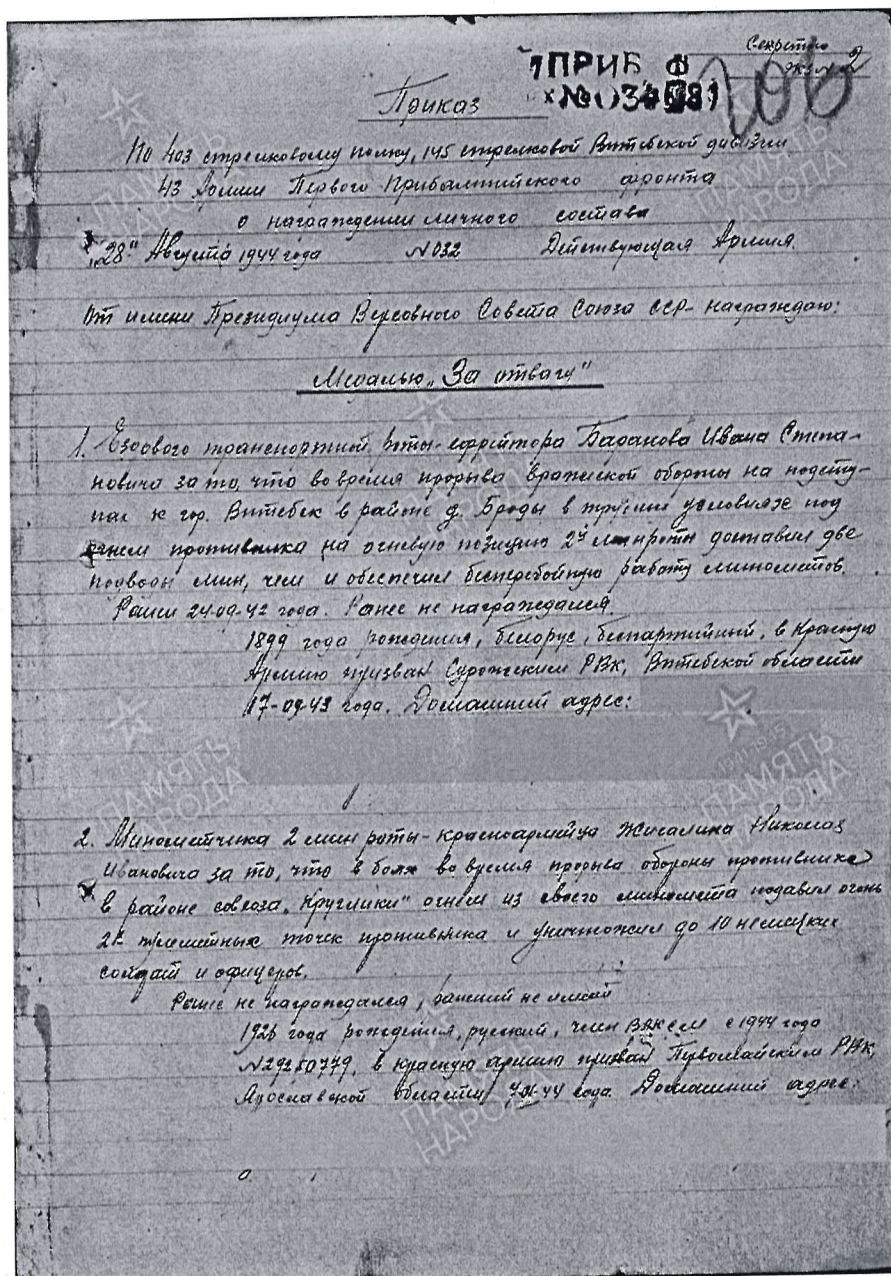 Секретно
экз N 2
1 ПРИБ Ф
Вх №034
106
Приказ
По 403 стрелковому полку, 145 стрелковой Витебской дивизии
43 Армии Первого Прибалтийского фронта
о награждении личного состава
"28" Августа 1944 года N 032 Действующая Армия.
От имени Президиума Верховного Совета Союза ССР - награждаю:
Медалью "За отвагу"
1. Ездового транспортной роты - ефрейтора Баранова Ивана Степа-
новича за то, что во время прорыва вражеской обороны на подсту-
пах к гор. Витебск в районе д. Броды в трудных условиях под
огнем противника на огневую позицию 2й минроты доставил две
подводы мин, чем и обеспечил бесперебойную работу минометов.
Ранен 24-09-42 года. Ранее не награждался.
1899 года рождения, белорус, беспартийный, в Красную
Армию призван Суражским РВК, Витебской области
17-09-43 года. Домашний адрес:
2. Минометчика 2 мин роты - красноармейца Жигалина Николая
Ивановича за то, что в боях во время прорыва обороны противника
в районе совхоза "Круглики" огнем из своего миномета подавил огонь
2х пулеметных точек противника и уничтожил до 10 немецких
солдат и офицеров.
Ранее не награждался, ранений не имеет
1926 года рождения, русский, член ВЛКСМ с 1944 года
N 29250779, в Красную армию призван Первомайским РВК,
Ярославской области года. Домашний адрес:
ПАМЯТЬ
НАРОДА
ПАМЯТЬ
НАРОДА
ПАМЯТЬ
НАРОДА
ПАМЯТЬ
НАРОДА
ПАМЯТЬ
НАРОДА
ПАМЯТЬ
НАРОДА